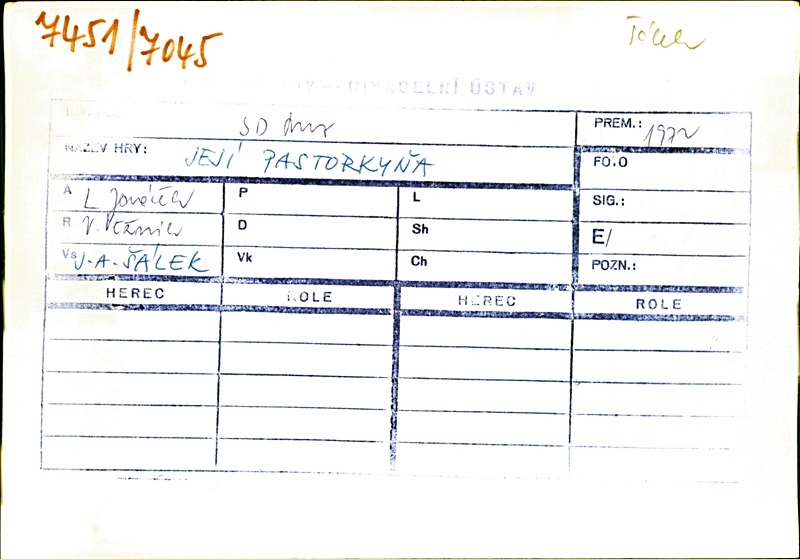 7451/7045
DIVADELNÍ ÚSTAV
SD Brno
PREM.: 1972
NÁZEV HRY: JEJÍ PASTORKYŇA
FOTO
A L Janáček
P
L
SIG.:
R V. Věžník
D
Sh
E/
Vs J.A. ŠÁLEK
Vk
Ch
POZN.:
HEREC ROLE HEREC ROLE